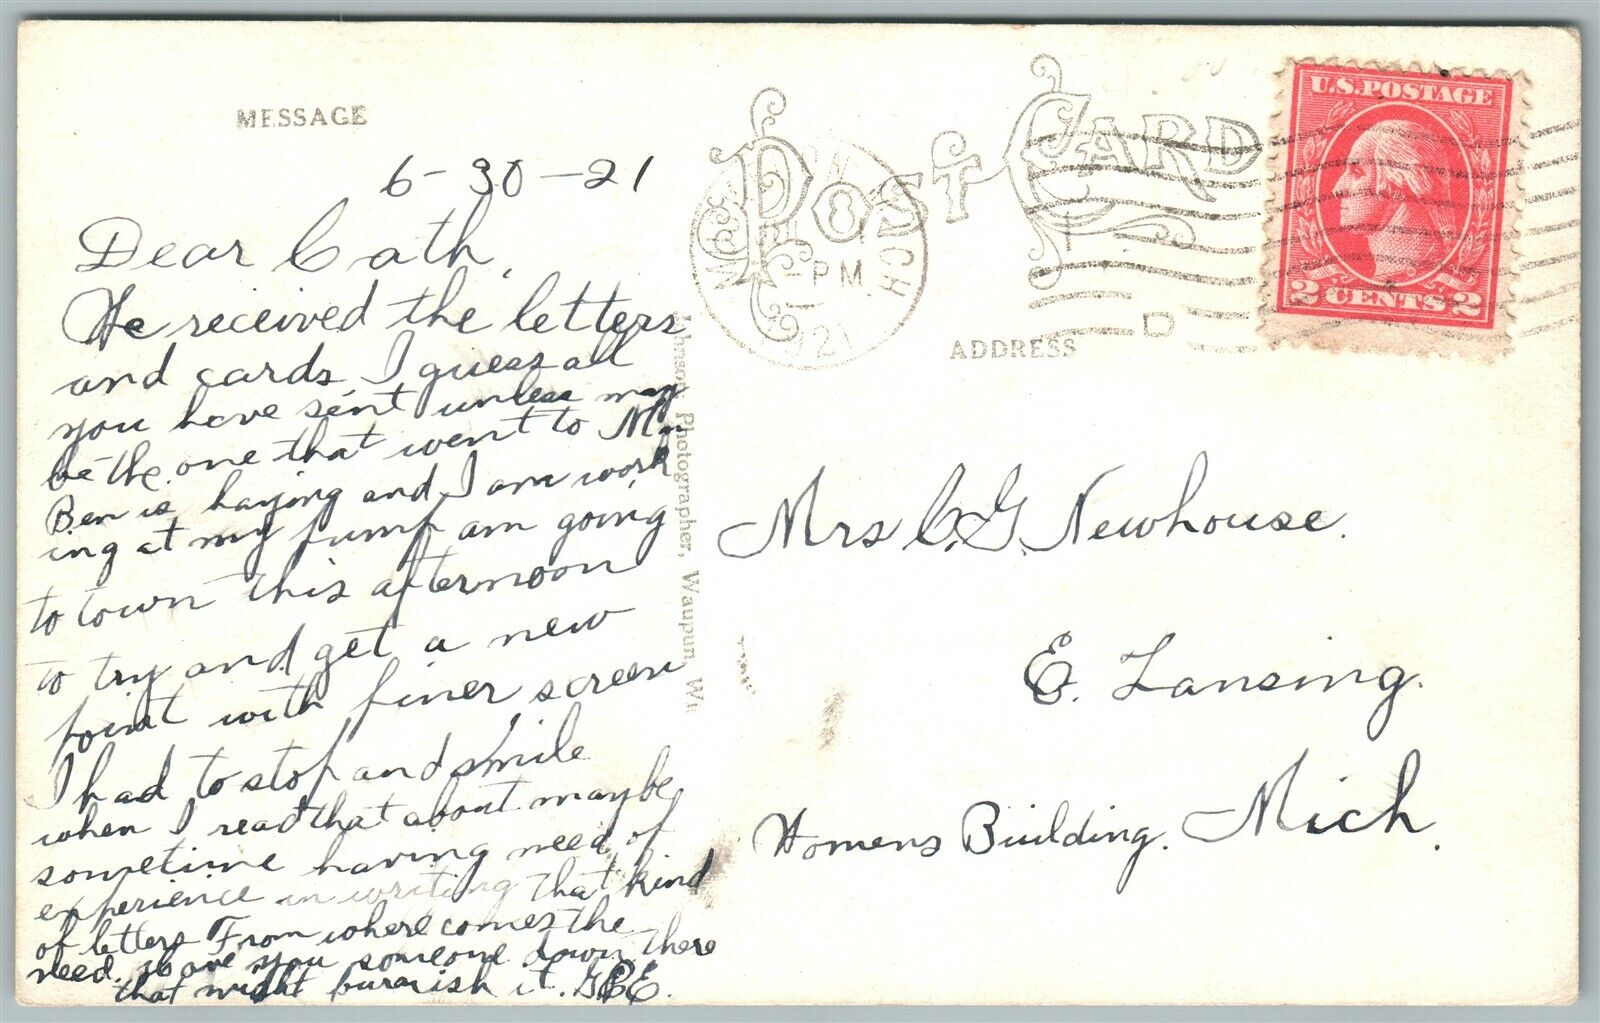 MESSAGE
6-30-21
Dear Cath,
We received the letters
and cards I guess all
you have sent unless may
be the one that went to
Ben is haying and I am work
ing at my pump am going
to town this afternoon
to try and get a new
point with finer screen
I had to stop and smile
when I read that about maybe
sometime having need of
experience in writing that kind
of letters From where comes the
need. Have you someone down there
that might furnish it.
POST CARD
8
PM
1921
MICH
U.S. POSTAGE
2 CENTS 2
ADDRESS
Mrs C. G. Newhouse.
E. Lansing.
Mich.
Womens Building.
Photographer, Waupun, Wis